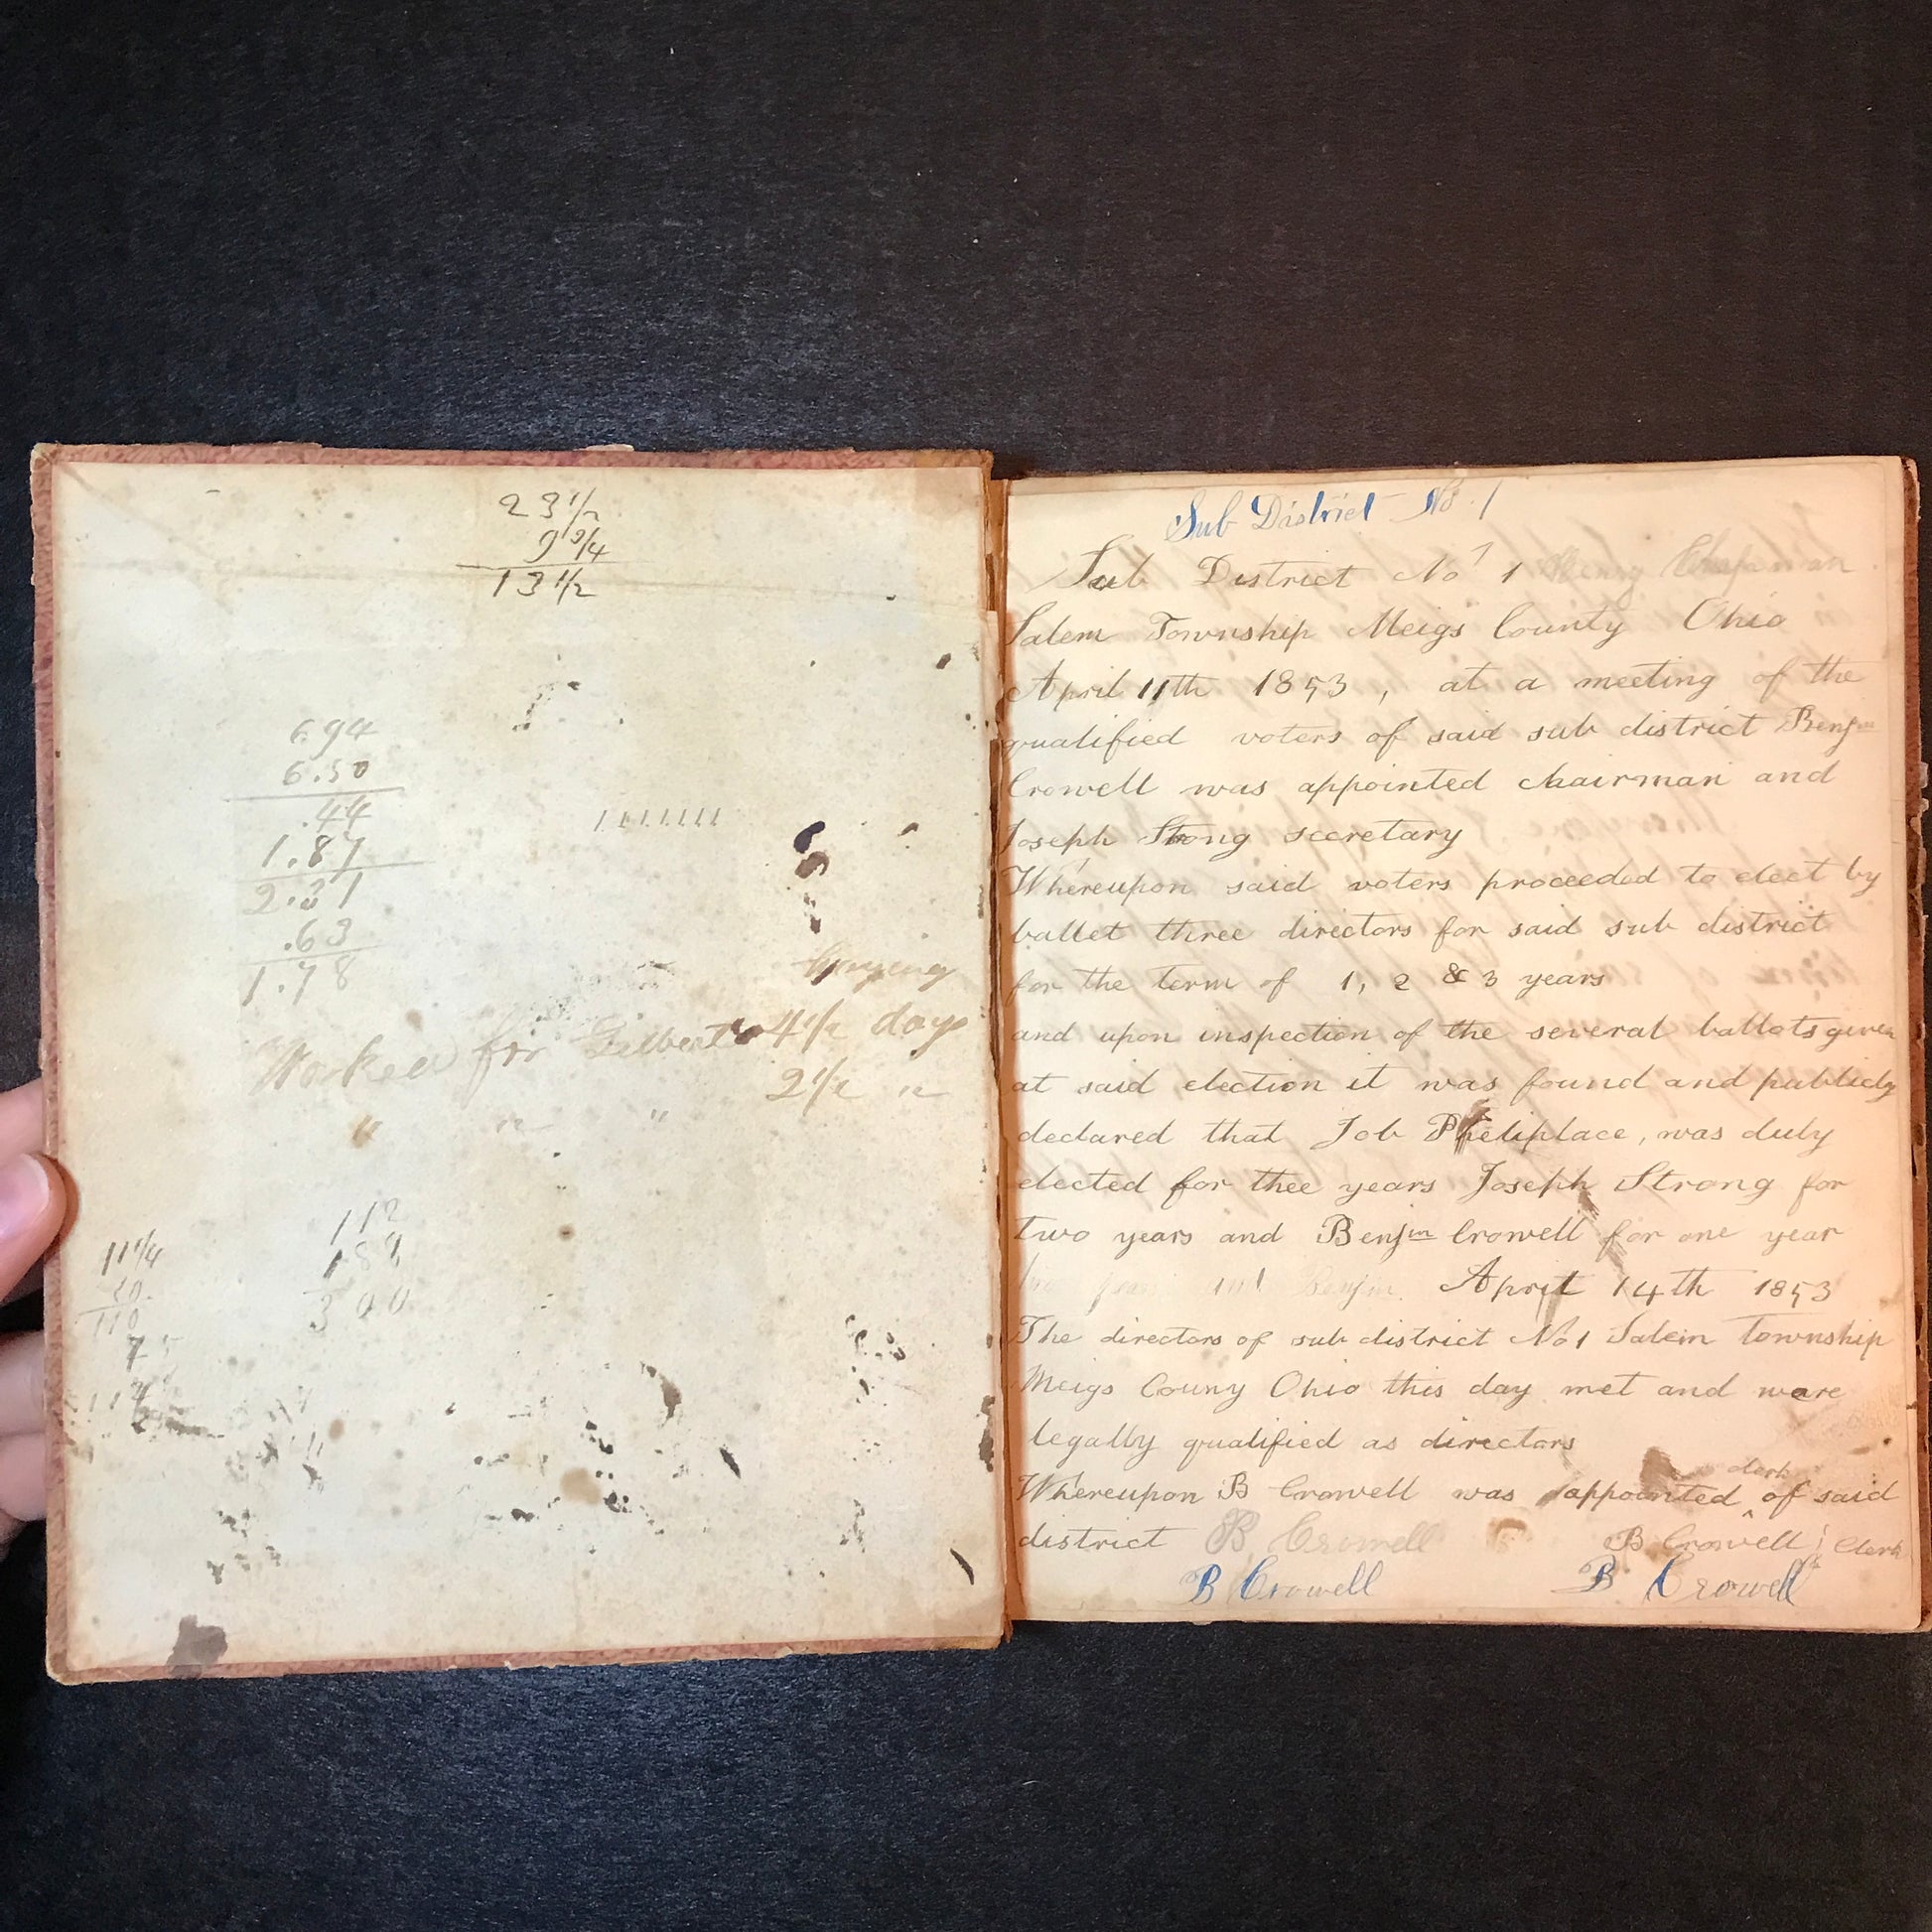 23 1/2
9 3/4
13 1/2
6.94
6.50
.44
1.87
2.31
.63
1.78
Worked for Gilbert 4 1/2 days
" " " 2 1/2 "
112
188
300
11 1/4
10
110
7
Sub District No. 1
Sub District No 1 Henry Chapman
Salem Township Meigs County Ohio
April 11th 1853, at a meeting of the
qualified voters of said sub district Benjm
Crowell was appointed chairman and
Joseph Strong secretary
Whereupon said voters proceeded to elect by
ballet three directors for said sub district
for the term of 1, 2 & 3 years
and upon inspection of the several ballots given
at said election it was found and publicly
declared that Job Pheliplace, was duly
elected for thee years Joseph Strong for
two years and Benjm Crowell for one year
Benjm. April 14th 1853
The directors of sub district No 1 Salem Township
Meigs Couny Ohio this day met and ware
legally qualified as directors
Whereupon B Crowell was appointed clerk of said
district B Crowell B Crowell Clerk
B Crowell B Crowell